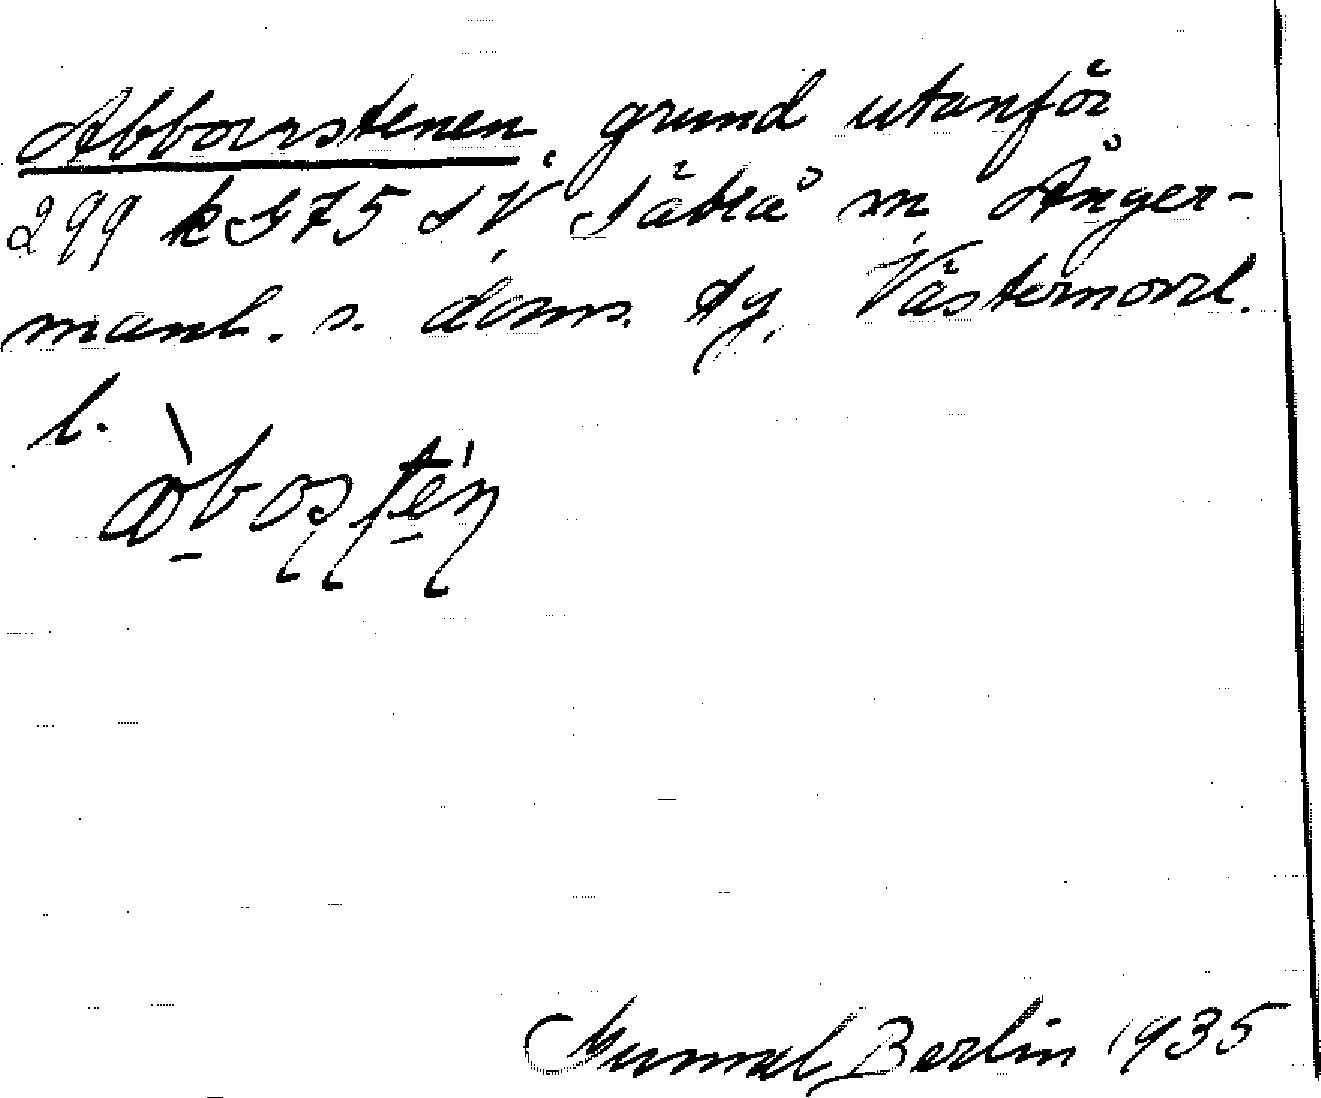 Abborrstenen, grund utanför
299 k G75 SV Säbrå sn, Ånger-
manl. s. doms. tg, Västernorrl.
l.
Gunnal Berlin 1935